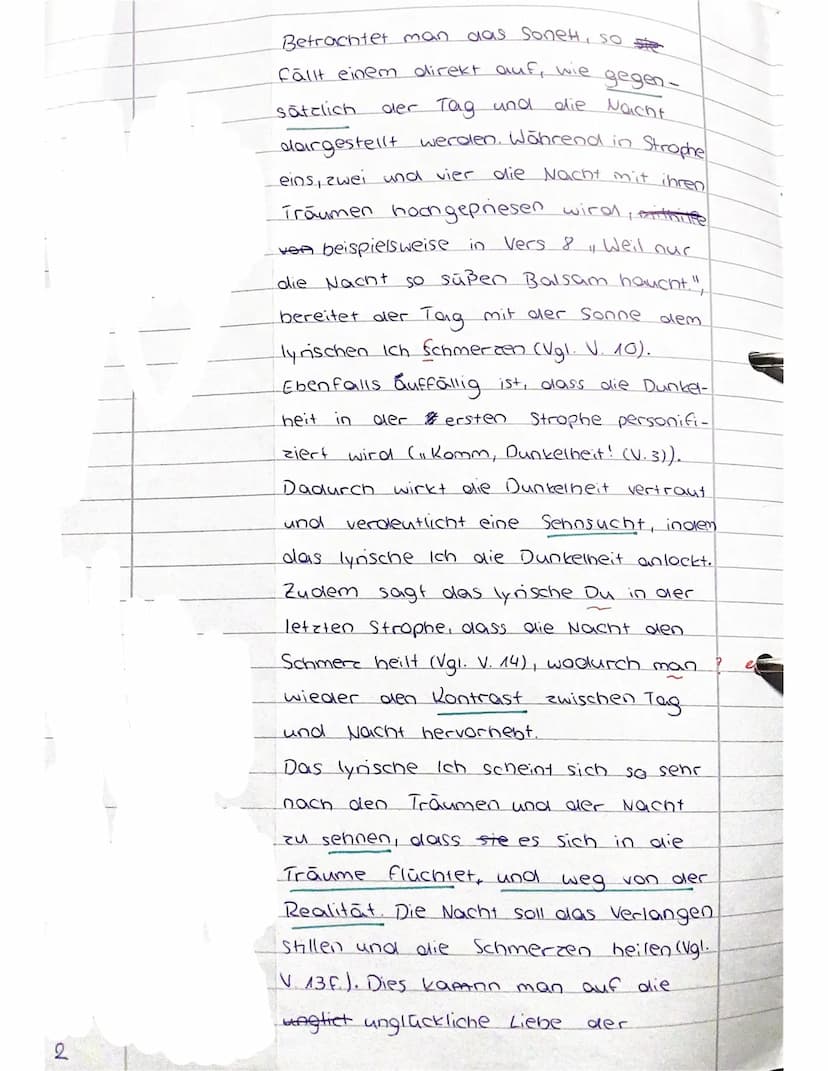 Betrachtet man das Sonett, so sie
fällt einem direkt auf, wie gegen-
sätzlich der Tag und die Nacht
dargestellt werden. Während in Strophe
eins, zwei und vier die Nacht mit ihren
Träumen hochgepriesen wird,
von beispielsweise in Vers 8 „Weil nur
die Nacht so süßen Balsam haucht.",
bereitet der Tag mit der Sonne dem
lyrischen Ich Schmerzen (Vgl. V. 10).
Ebenfalls auffällig ist, dass die Dunkel-
heit in der ersten Strophe personifi-
ziert wird („Komm, Dunkelheit! (V. 3)).
Dadurch wirkt die Dunkelheit vertraut
und verdeutlicht eine Sehnsucht, indem
das lyrische Ich die Dunkelheit anlockt.
Zudem sagt das lyrische Du in der
letzten Strophe, dass die Nacht den
Schmerz heilt (Vgl. V. 14), wodurch man ?
wieder den Kontrast zwischen Tag
und Nacht hervorhebt.
Das lyrische Ich scheint sich so sehr
nach den Träumen und der Nacht
zu sehnen, dass sie es sich in die
Träume flüchtet, und weg von der
Realität. Die Nacht soll das Verlangen
stillen und die Schmerzen heilen (Vgl.
V. 13f.). Dies kann man auf die
unglict unglückliche Liebe der
2